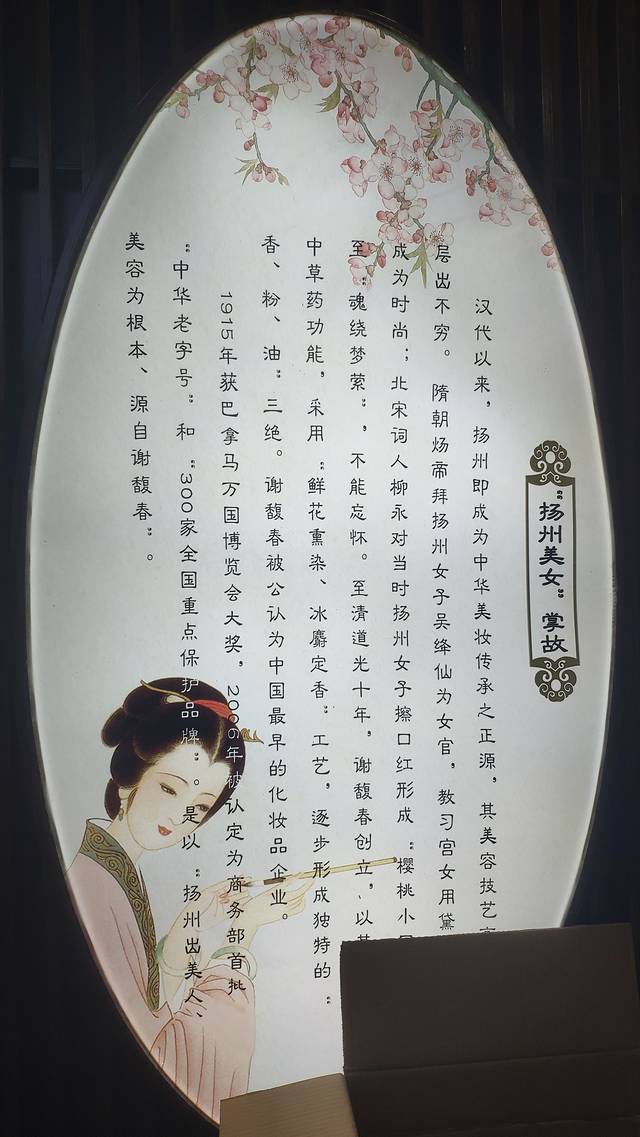 “扬州美女”掌故
汉代以来，扬州即成为中华美妆传承之正源，其美容技艺
层出不穷。隋朝炀帝拜扬州女子吴绛仙为女官，教习宫女用黛
成为时尚；北宋词人柳永对当时扬州女子擦口红形成“樱桃小
至“魂绕梦萦”，不能忘怀。至清道光十年，谢馥春创立，以
中草药功能，采用“鲜花熏染、冰麝定香”工艺，逐步形成独特的“
香、粉、油”三绝。谢馥春被公认为中国最早的化妆品企业。
1915年获巴拿马万国博览会大奖，2006年被认定为商务部首批
“中华老字号”和“300家全国重点保护品牌”。是以“扬州出美人、
美容为根本、源自谢馥春”。